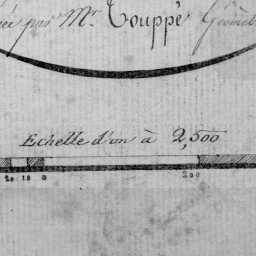 ée par Mr. Touppé Géomèt
Echelle d'un à 2,500
20 10 0 200